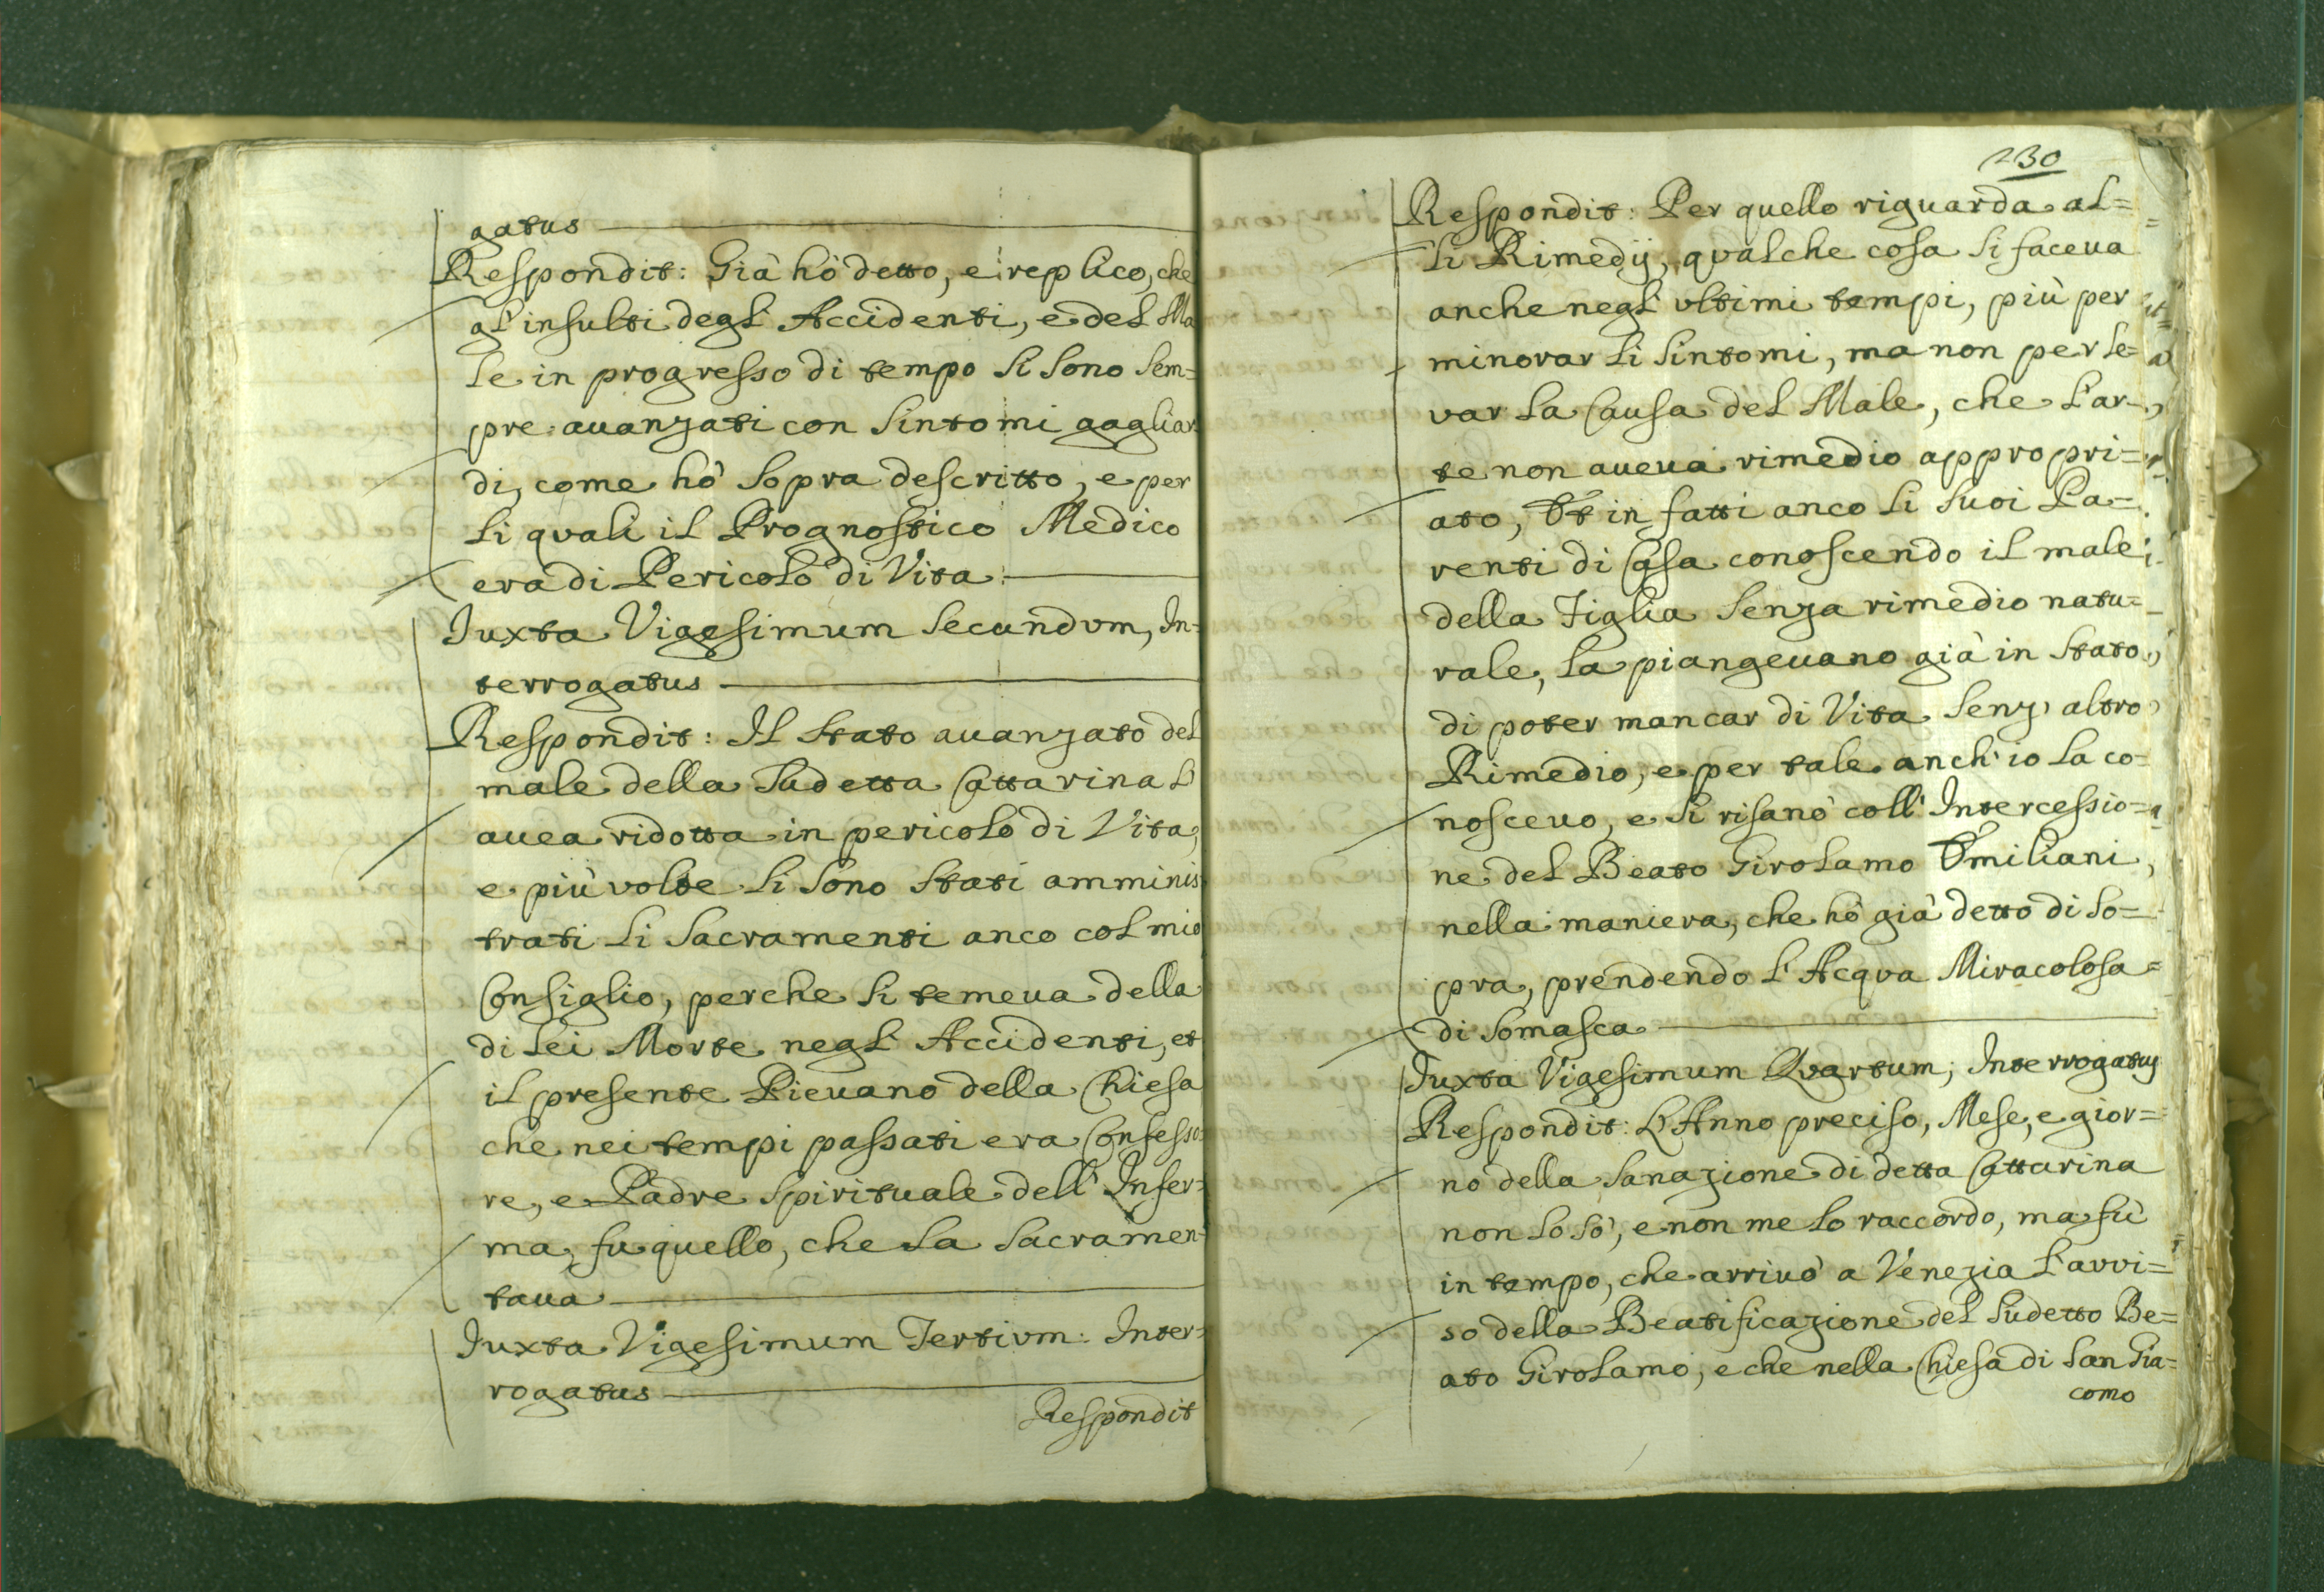 gatus
Respondit: Già hò detto, e replico, che
gl'insulti degl'Accidenti, e del Ma
le in progresso di tempo si sono sem=
pre auanzati con sintomi gagliar=
di, come hò sopra descritto, e per
li quali il Prognostico Medico
era di Pericolo di Vita.
Iuxta Vigesimum secundum, In=
terrogatus
Respondit: Il stato auanzato del
male della sudetta Cattarina l'
auea ridotta in pericolo di Vita,
e più volte li sono stati amminis
trati li Sacramenti anco col mio
Consiglio, perche si temeua della
di lei Morte negl'Accidenti, et
il presente Pieuano della Chiesa
che nei tempi passati era Confesso=
re, e Padre Spirituale dell'Infer=
ma, fu quello, che la Sacramen=
taua
Iuxta Vigesimum Tertium: Inter=
rogatus
Respondit
230
Respondit: Per quello riguarda al=
li Rimedij, qualche cosa si faceua
anche negl'ultimi tempi, più per
minorar li sintomi, ma non per le=
var la Causa del Male, che l'ar=
te non aueua rimedio appropri=
ato, Et in fatti anco li suoi Pa=
renti di Casa conoscendo il male
della Figlia senza rimedio natu=
rale, la piangeuano già in stato
di poter mancar di Vita senz'altro
Rimedio, e per tale anch'io la co=
noscevo, e si risanò coll'Intercessio=
ne del Beato Girolamo Emiliani,
nella maniera, che hò già detto di so=
pra, prendendo l'Acqua Miracolosa
di Somasca
Iuxta Vigesimum Quartum; Interrogatus
Respondit: L'Anno preciso, Mese, e gior=
no della sanazione di detta Cattarina
non lo sò, e non me lo raccordo, ma fù
in tempo, che arriuò a Venezia l'avvi=
so della Beatificazione del sudetto Be=
ato Girolamo, e che nella Chiesa di San Gia=
como